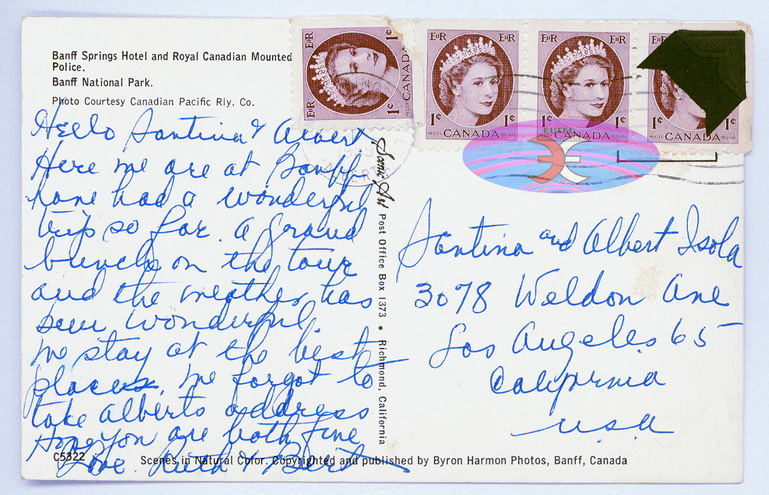 Banff Springs Hotel and Royal Canadian Mounted
Police.
Banff National Park.
Photo Courtesy Canadian Pacific Rly. Co.
Hello Santina & Albert
Here we are at Banff
have had a wonderful
trip so far. a grand
bunch on the tour
and the weather has
been wonderful,
we stay at the best
places. we forgot to
take Alberts address
Hope you are both fine
Love Ruth & Bert
C5322
Scenes in Natural Color. Copyrighted and published by Byron Harmon Photos, Banff, Canada
Scenic Art Post Office Box 1373 • Richmond, California
EIIR 1¢ CANADA
EIIR EIIR 1¢ 1¢ CANADA
EIIR EIIR 1¢ 1¢ CANADA
EIIR 1¢ CANADA
Santina and Albert Isola
3078 Weldon Ave
Los Angeles 65
California
U.S.A